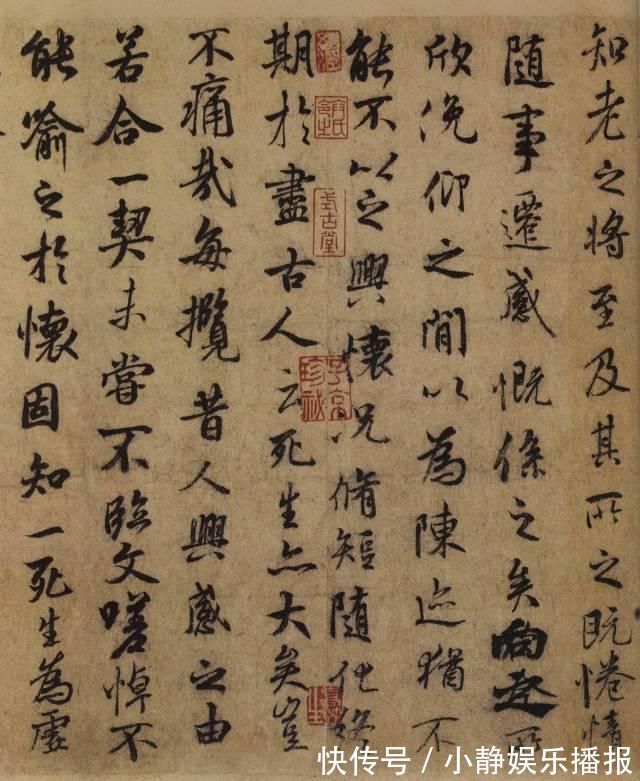 知老之将至及其所之既惓情
随事遷感慨係之矣向之所
欣俛仰之閒以為陳迹猶不
能不以之興懷况脩短随化終
期於盡古人云死生亦大矣豈
不痛哉每攬昔人興感之由
若合一契未嘗不臨文嗟悼不
能喻之於懷固知一死生為虛
式古堂
快传号／小静娱乐播报